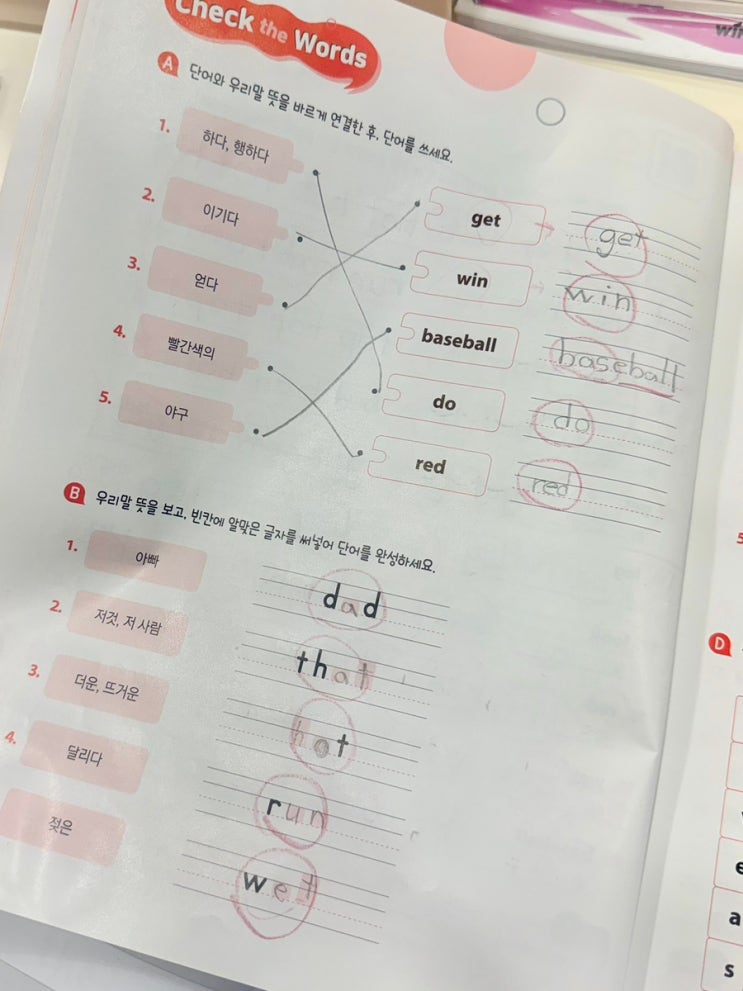 Check the Words
A 단어와 우리말 뜻을 바르게 연결한 후, 단어를 쓰세요.
1. 하다, 행하다
2. 이기다
3. 얻다
4. 빨간색의
5. 야구
get get
win win
baseball baseball
do do
red red
B 우리말 뜻을 보고, 빈칸에 알맞은 글자를 써넣어 단어를 완성하세요.
1. 아빠 dad
2. 저것, 저 사람 that
3. 더운, 뜨거운 hot
4. 달리다 run
젖은 wet
D
5
e
a
s